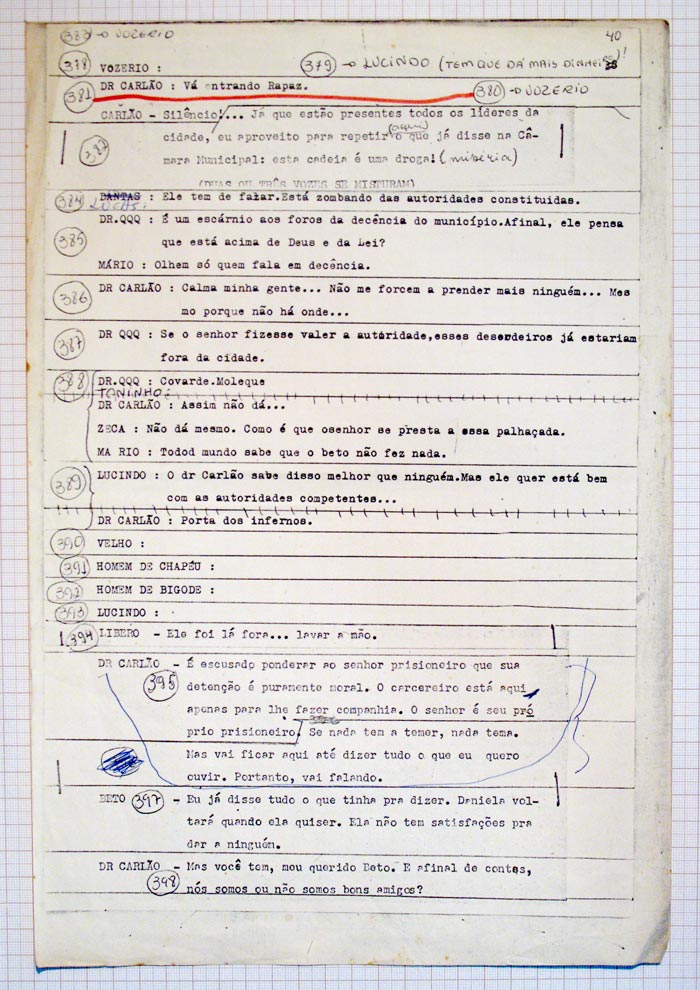 383 - VOZERIO
40
378 VOZERIO :
379 - LUCINDO (TEM QUE DÁ MAIS DINHEI
)!
381 DR CARLÃO : Vá entrando Rapaz.
380 - VOZERIO
CARLÃO - Silêncio!... Já que estão presentes todos os líderes da
cidade, eu aproveito para repetir (aqui) o que já disse na Câ-
382 mara Municipal: esta cadeia é uma droga! (miséria)
(DUAS OU TRÊS VOZES SE MISTURAM)
384 DANTAS : Ele tem de falar.Está zombando das autoridades constituidas.
LUCAS:
DR.QQQ : É um escárnio aos foros da decência do município.Afinal, ele pensa
385 que está acima de Deus e da Lei?
MÁRIO : Olhem só quem fala em decência.
386 DR CARLÃO : Calma minha gente... Não me forcem a prender mais ninguém... Mes
mo porque não há onde...
387 DR QQQ : Se o senhor fizesse valer a autoridade,esses desordeiros já estariam
fora da cidade.
388 DR.QQQ : Covarde.Moleque
TONINHO:
DR CARLÃO : Assim não dá...
ZECA : Não dá mesmo. Como é que osenhor se presta a essa palhaçada.
MA RIO : Todod mundo sabe que o beto não fez nada.
389 LUCINDO : O dr Carlão sabe disso melhor que ninguém.Mas ele quer está bem
com as autoridades competentes...
DR CARLÃO : Porta dos infernos.
390 VELHO :
391 HOMEM DE CHAPÉU :
392 HOMEM DE BIGODE :
393 LUCINDO :
394 LIBERO - Ele foi lá fora... lavar a mão.
DR CARLÃO - É escusado ponderar ao senhor prisioneiro que sua
395 detenção é puramente moral. O carcereiro está aqui
apenas para lhe fazer companhia. O senhor é seu pró
396
prio prisioneiro. Se nada tem a temer, nada tema.
Mas vai ficar aqui até dizer tudo o que eu quero
ouvir. Portanto, vai falando.
BETO 397 - Eu já disse tudo o que tinha pra dizer. Daniela vol-
tará quando ela quiser. Ela não tem satisfações pra
dar a ninguém.
DR CARLÃO - Mas você tem, meu querido Beto. E afinal de contas,
398 nós somos ou não somos bons amigos?